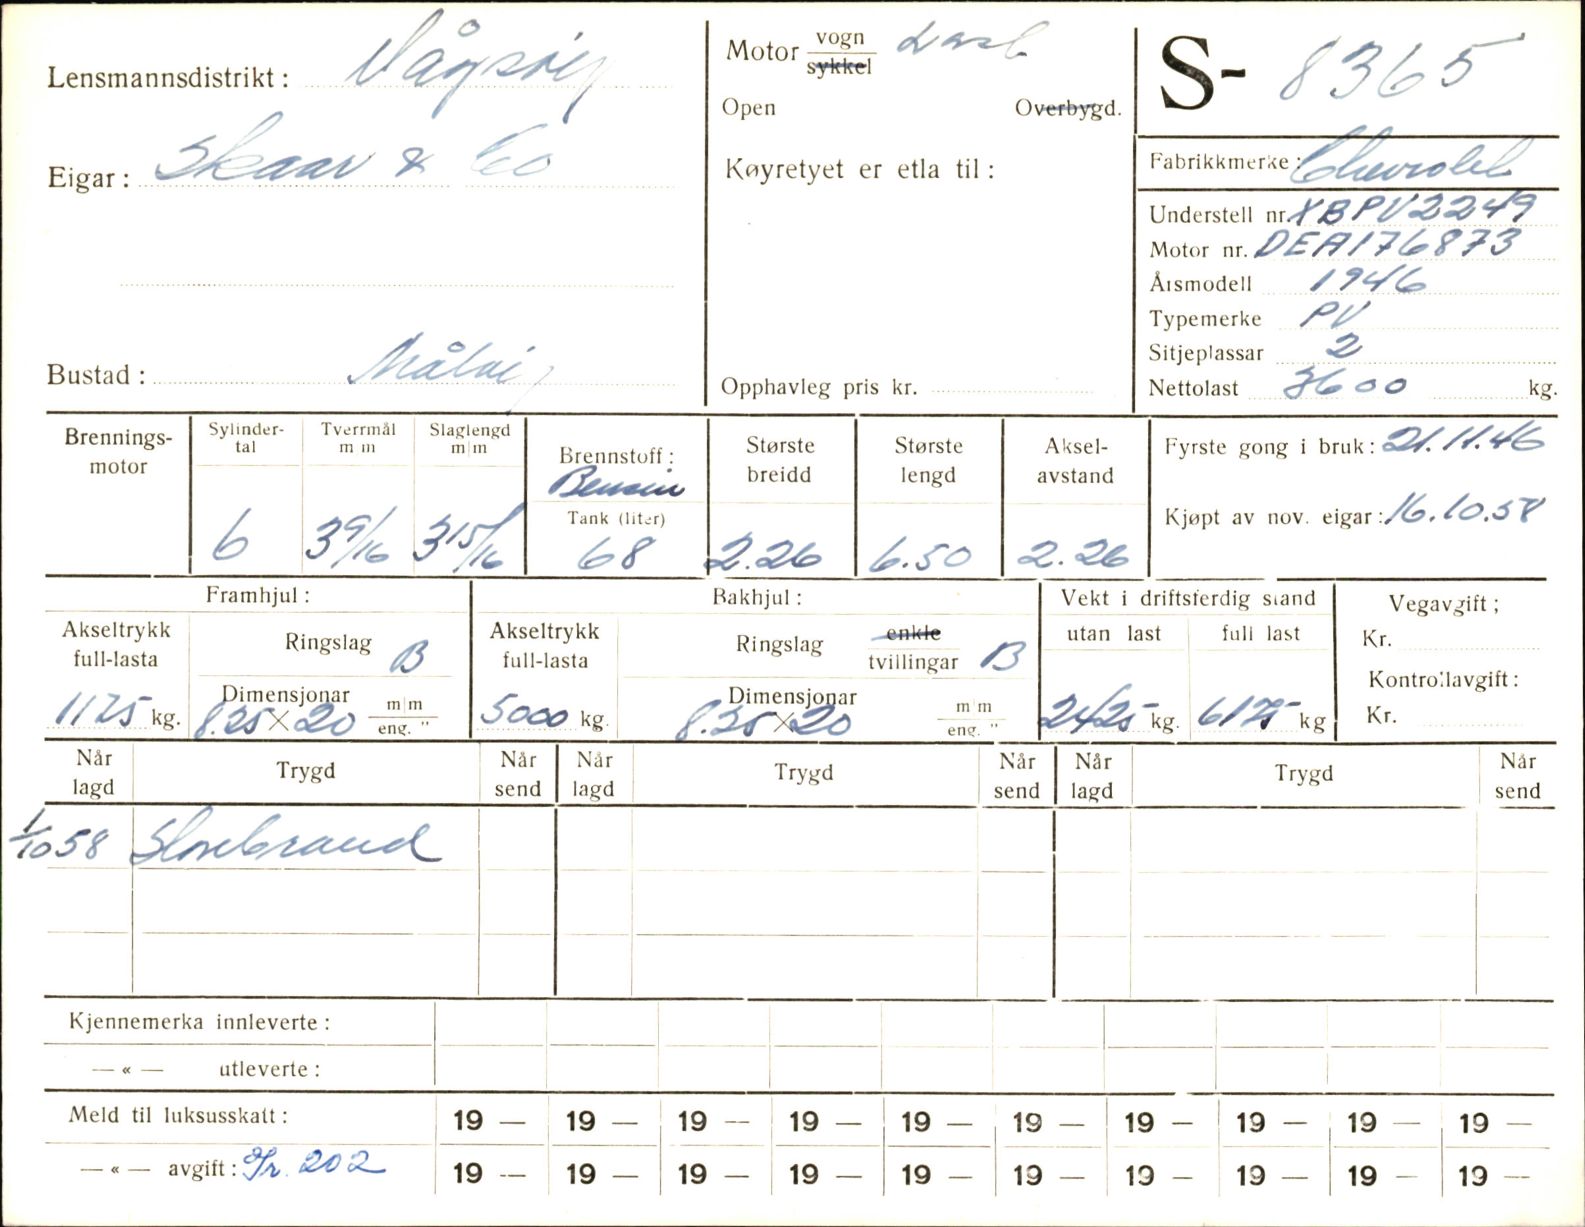 Lensmannsdistrikt: Vågsøy
Eigar: Skaar & Co
Bustad: Måløy
Motor vogn sykkel Last
Open Overbygd.
Køyretyet er etla til:
Opphavleg pris kr.
S- 8365
Fabrikkmerke: Chevrolet
Understell nr. XBPV2249
Motor nr. DEA176873
Årsmodell 1946
Typemerke PV
Sitjeplassar 2
Nettolast 3600 kg.
Brennings-motor
Sylinder-tal 6
Tverrmål m m 3 9/16
Slaglengd m m 3 15/16
Brennstoff: Bensin
Tank (liter) 68
Største breidd 2.26
Største lengd 6.50
Aksel-avstand 2.26
Fyrste gong i bruk: 21.11.46
Kjøpt av nov. eigar: 16.10.58
Framhjul:
Akseltrykk full-lasta 1175 kg.
Ringslag B
Dimensjonar 8.25×20 m m eng. "
Bakhjul:
Akseltrykk full-lasta 5000 kg.
Ringslag enkle tvillingar B
Dimensjonar 8.25×20 m m eng. "
Vekt i driftsferdig stand
utan last 2425 kg.
full last 6175 kg
Vegavgift;
Kr.
Kontrollavgift:
Kr.
Når lagd Trygd Når send Når lagd Trygd Når send Når lagd Trygd Når send
1/10 58 Storebrand
Kjennemerka innleverte:
— « — utleverte:
Meld til luksusskatt: 19 — 19 — 19 — 19 — 19 — 19 — 19 — 19 — 19 — 19 —
— « — avgift: Gr. 202 19 — 19 — 19 — 19 — 19 — 19 — 19 — 19 — 19 — 19 —